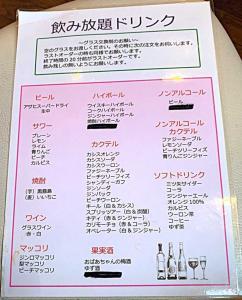 飲み放題ドリンク
～グラス交換制のお願い～
空のグラスをお渡しください。その時に次の注文をお伺いします。
ラストオーダーの時も同様でお願いします。
終了時間の20分前がラストオーダーです。
飲み残しの無いようにお願いします。
ビール
アサヒスーパードライ
生中
サワー
プレーン
レモン
ライム
青りんご
ピーチ
カルピス
焼酎
(芋) 黒霧島
(麦) いいちこ
ワイン
グラスワイン
赤・白
マッコリ
ジンロマッコリ
梨マッコリ
ピーチマッコリ
ハイボール
ウイスキーハイボール
コークハイボール
ジンジャーハイボール
焼酎ハイボール
カクテル
カシスオレンジ
カシスソーダ
カシスウーロン
ファジーネーブル
ピーチウーロン
ピーチフィズ
シャンディーガフ
ジンソーダ
ジンバック
モスコミュール
ウォッカソーダ
ビール (白 & カシス)
スプリッツァー (白 & 炭酸)
キティ (赤 & ジンジャー)
カリモーチョ (赤 & コーラ)
オペレーター (白 & ジンジャー)
果実酒
おばあちゃんの梅酒
ゆず酒
ノンアルコール
ビール
ノンアルコール
カクテル
ファジーネーブル
レモンソーダ
ピーチソーダフィズ
青りんごジンジャー
ソフトドリンク
三ツ矢サイダー
コーラ
ジンジャーエール
オレンジ 100%
カルピス
ウーロン茶
緑茶